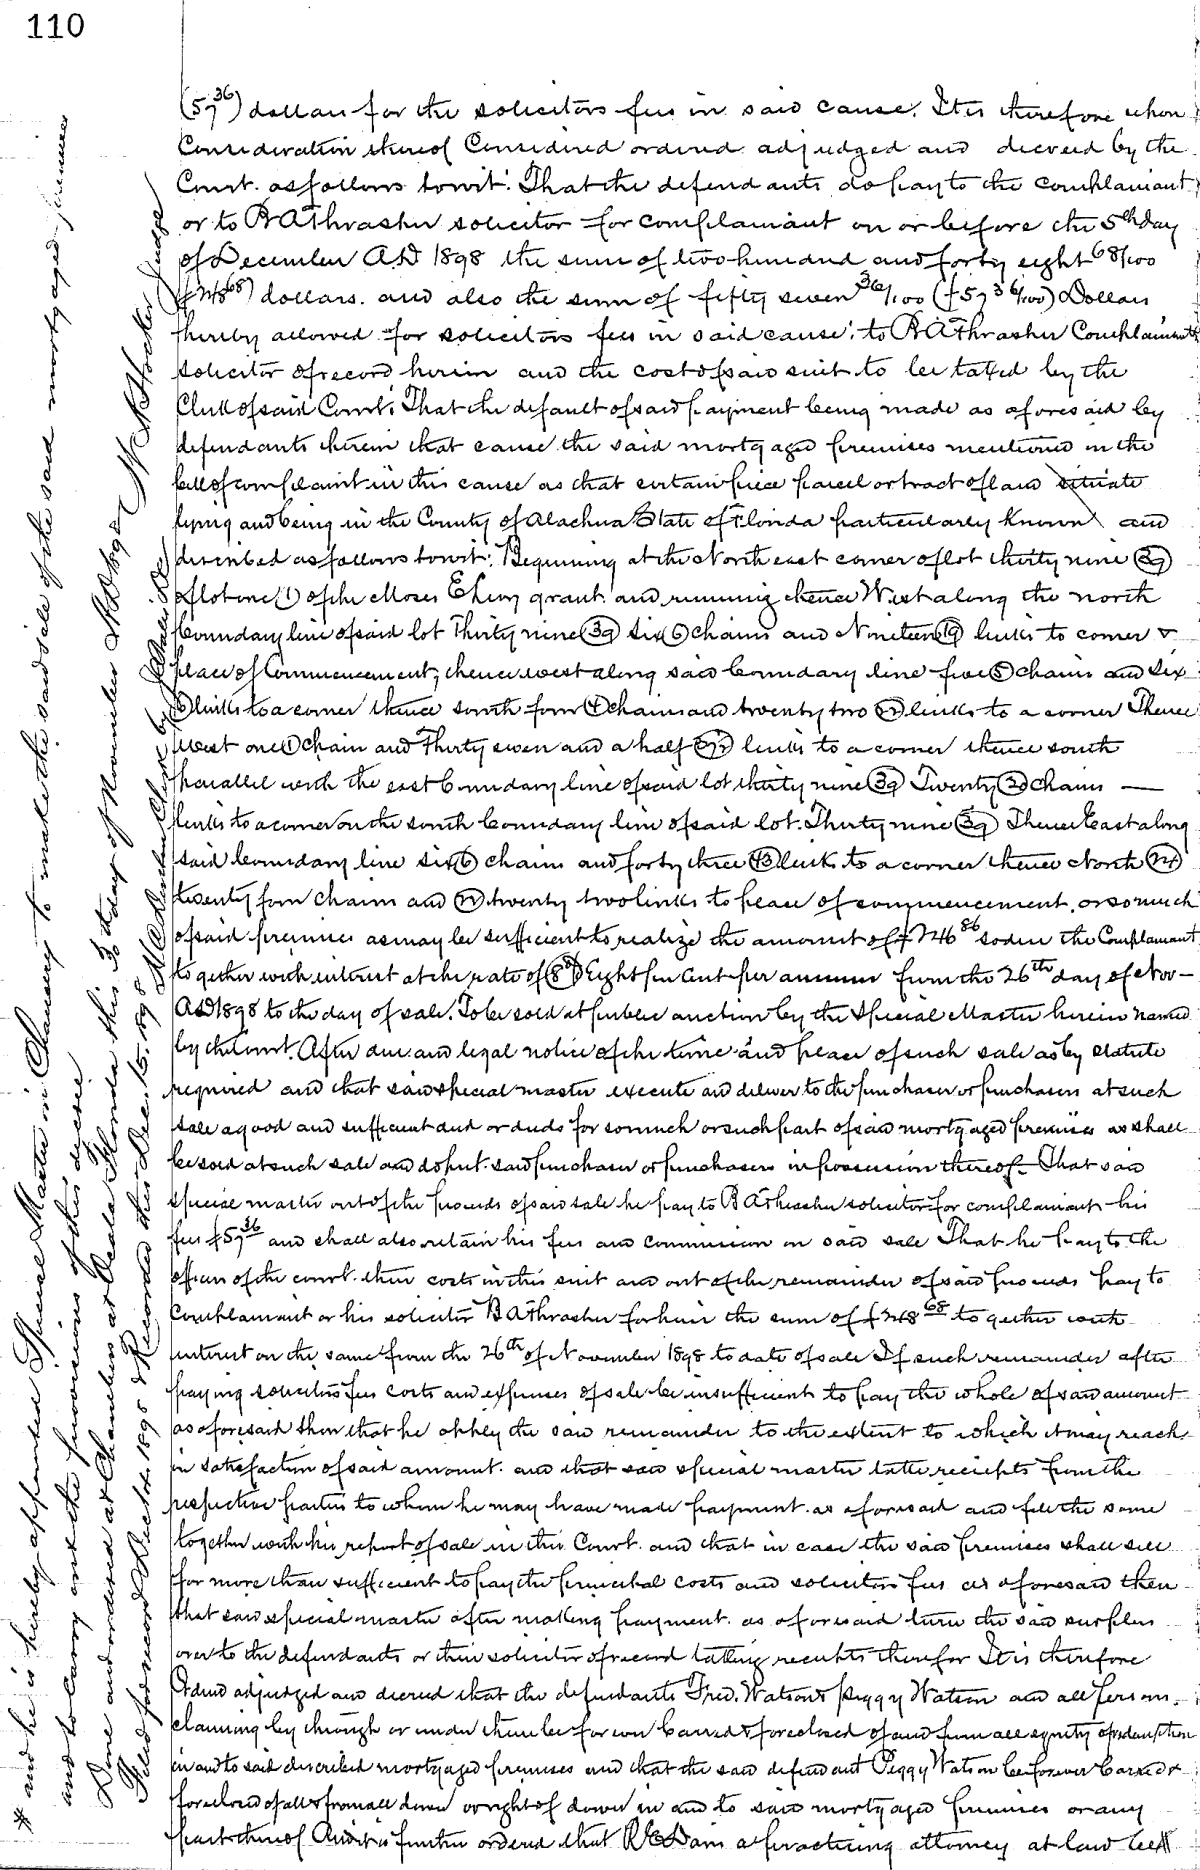 110
(57 36) dollars for the solicitors fees in said cause. It is therefore upon
Consideration thereof Considered ordered adjudged and decreed by the
Court. as follows towit: That the defendants do pay to the complainant
or to B A Thrasher solicitor for complainant on or before the 5th day
of December A.D 1898 the sum of two hundred and forty eight 68/100
($248 68) dollars. and also the sum of fifty seven 36/100 ($57 36/100) Dollars
hereby allowed for solicitors fees in said cause, to B A Thrasher Complainants
solicitor of record herein and the cost of said suit to be taxed by the
Clerk of said Court. That the default of said payment being made as aforesaid by
defendants herein that cause the said mortgaged premises mentioned in the
bill of complaint in this cause as that certain piece parcel or tract of land situate
lying and being in the County of Alachua State of Florida particularly known and
described as follows towit: Beginning at the North east corner of lot thirty nine (39)
of lot one (1) of the Moses E Levy grant. and running thence West along the north
boundary line of said lot Thirty nine (39) six (6) chains and Nineteen (19) links to corner &
place of Commencement; thence west along said boundary line five (5) chains and six
(6) links to a corner thence south four (4) chains and twenty two (22) links to a corner Thence
West one (1) chain and Thirty seven and a half links to a corner thence south
parallel with the east boundary line of said lot thirty nine (39) Twenty (20) chains —
links to a corner on the south boundary line of said lot. Thirty nine (39) Thence East along
said boundary line six (6) chains and forty three (43) links to a corner thence North (24)
twenty four chains and (22) twenty two links to place of commencement, or so much
of said premises as may be sufficient to realize the amount of $ so due the Complainant
to gether with interest at the rate of (8) Eight per Cent per annum from the 26th day of Nov—
AD 1898 to the day of sale. To be sold at public auction by the Special Master herein named
by the Court. After due and legal notice of the time and place of such sale as by statute
required and that said special master execute and deliver to the purchaser or purchasers at such
sale a good and sufficient deed or deeds for so much or such part of said mortgaged premises as shall
be sold at such sale and do put said purchaser or purchasers in possession thereof— That said
special master out of the proceeds of said sale he pay to B A Thrasher solicitor for complainant his
fees $57 36 and shall also retain his fees and commission on said sale That he pay to the
officers of the court. their costs in this suit and out of the remainder of said proceeds pay to
Complainant or his solicitor B A Thrasher for him the sum of $248 68 to gether with
interest on the same from the 26th of November 1898 to date of sale If such remainder after
paying solicitors fees costs and expenses of sale be insufficient to pay the whole of said amount
as aforesaid then that he apply the said remainder to the extent to which it may reach
in satisfaction of said amount. and that said special master take receipts from the
respective parties to whom he may have made payment. as aforesaid and file the same
together with his report of sale in this Court. and that in case the said premises shall sell
for more than sufficient to pay the principal costs and solicitors fees as aforesaid then
that said special master after making payment. as aforesaid turn the said surplus
over to the defendants or their solicitor of record taking receipts therefor It is therefore
Ordered adjudged and decreed that the defendants Fred. Watson & Peggy Watson and all persons
claiming by through or under them be forever barred & foreclosed of and from all equity of redemption
in and to said described mortgaged premises and that the said defendant Peggy Watson be forever barred &
foreclosed of all & from all dower or right of dower in and to said mortgaged premises or any
part thereof. And it is further ordered that R E Davis a practicing attorney at law
# and he is hereby appointed Special Master in Chancery to make the said sale of the said mortgaged premises
and to carry out the provisions of this decree
Done and ordered at Chambers at Ocala Florida this day of November A.D. 1898
Filed for record Dec 10. 1898 & Recorded this Dec. 15. 1898
Judge
Clerk by